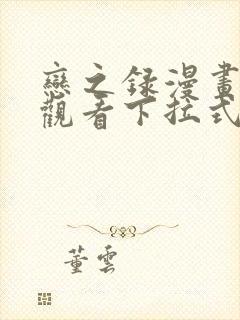 戀之録漫畫
觀看下拉式
董雲